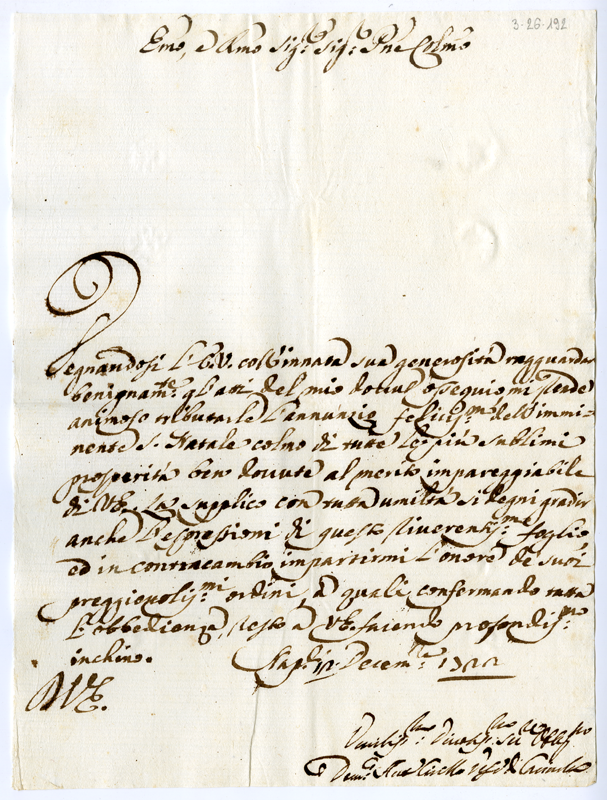 3-26-192
Emo, e Rmo Sigr. Sigr. Pne Colmo
Degnandosi l'E.V. coll'innata sua generosità ragguardar
benignamte. gl'atti del mio dovuto ossequio, mi rende
animoso tributarle l'annunzio felicissmo dell'immi-
nente S. Natale colmo di tutte le più sublimi
prosperità ben dovute al merito impareggiabile
di V.E. La supplico con tutta umiltà si degni gradir
anche l'espressioni di questo riverentissme. foglio
ed in contracambio impartirmi l'onore de suoi
preggievolissmi ordini, a quali confermando tutta
l'obbedienza, resto a V.E. facendo profondissmo
inchino.
Decemre 1722
D.V.E.
Umiliss.mo Devotiss.mo